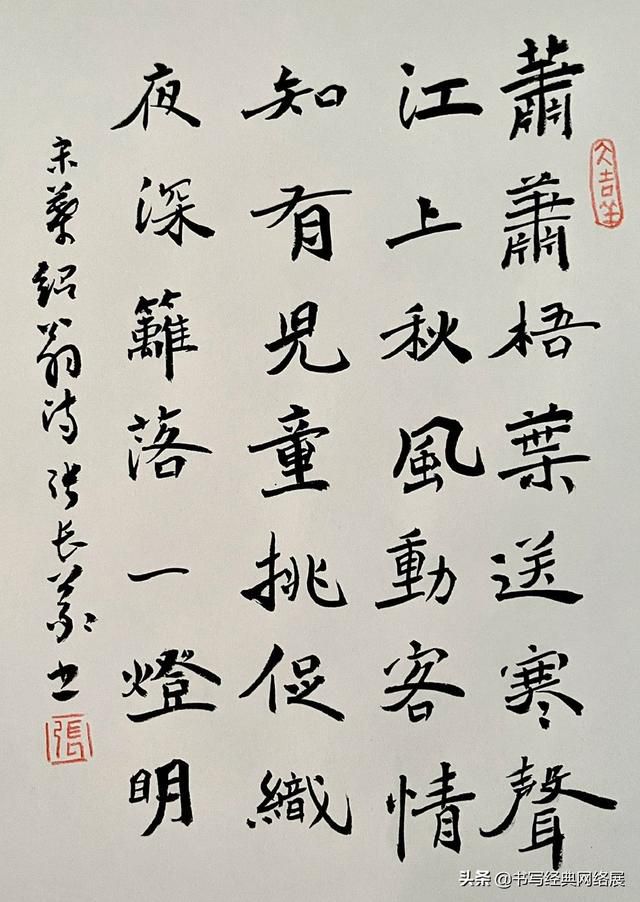 蕭蕭梧葉送寒聲
江上秋風動客情
知有児童挑促織
夜深籬落一燈明
宋葉紹翁詩張長書
張
头条 @书写经典网络展